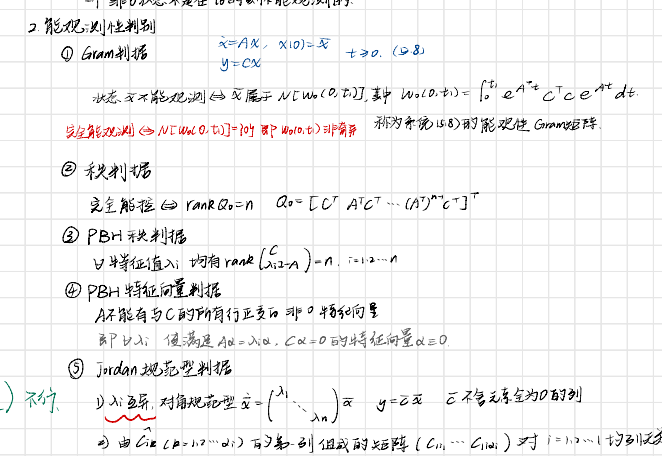 2. 能观测性判别
① Gram判据 ẋ=Ax, x(0)=x̄ t≥0. (5.8)
y=Cx
状态 x̄ 不能观测 ⇔ x̄ 属于 N[Wo(0,t₁)], 其中 Wo(0,t₁) = ∫₀^t₁ e^{Aᵀt} Cᵀ C e^{At} dt.
完全能观测 ⇔ N[Wo(0,t₁)]={0} 即 Wo(0,t₁) 非奇异 称为系统(5.8)的能观性Gram矩阵.
② 秩判据
完全能控 ⇔ rank Qo=n Qo=[Cᵀ AᵀCᵀ ⋯ (Aᵀ)ⁿ⁻¹Cᵀ]ᵀ
③ PBH 秩判据
∀ 特征值λi 均有 rank (C λiI-A) = n, i=1.2⋯n
④ PBH 特征向量判据
A不能有与C的所有行正交的非0特征向量
即 ∀λi 使满足 Aα=λiα, Cα=0 的特征向量α≡0.
⑤ Jordan 规范型判据
不行.
1) λi 互异, 对角规范型 ẋ̄ = (λ₁ ⋱ λn) x̄ y=c̄x̄ c̄ 不含元素全为0的列
2) 由 Ĉik (k=1.2⋯αi) 的第一列组成的矩阵 (Ci1 ⋯ Ciαi) 对 i=1.2⋯l 均列